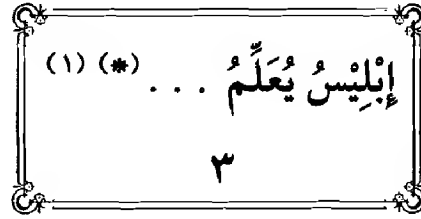 إِبْلِيْسُ يُعَلِّمُ ... (*) (١)
٣